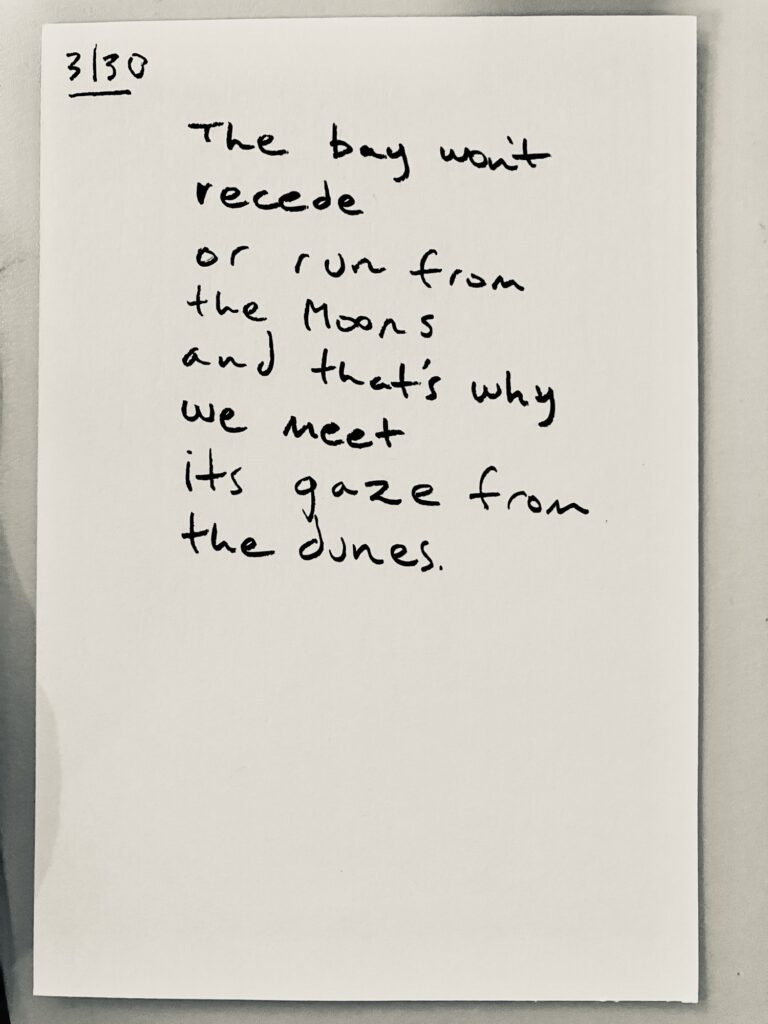 3/30
The bay won't
recede
or run from
the Moons
and that's why
we meet
its gaze from
the dunes.